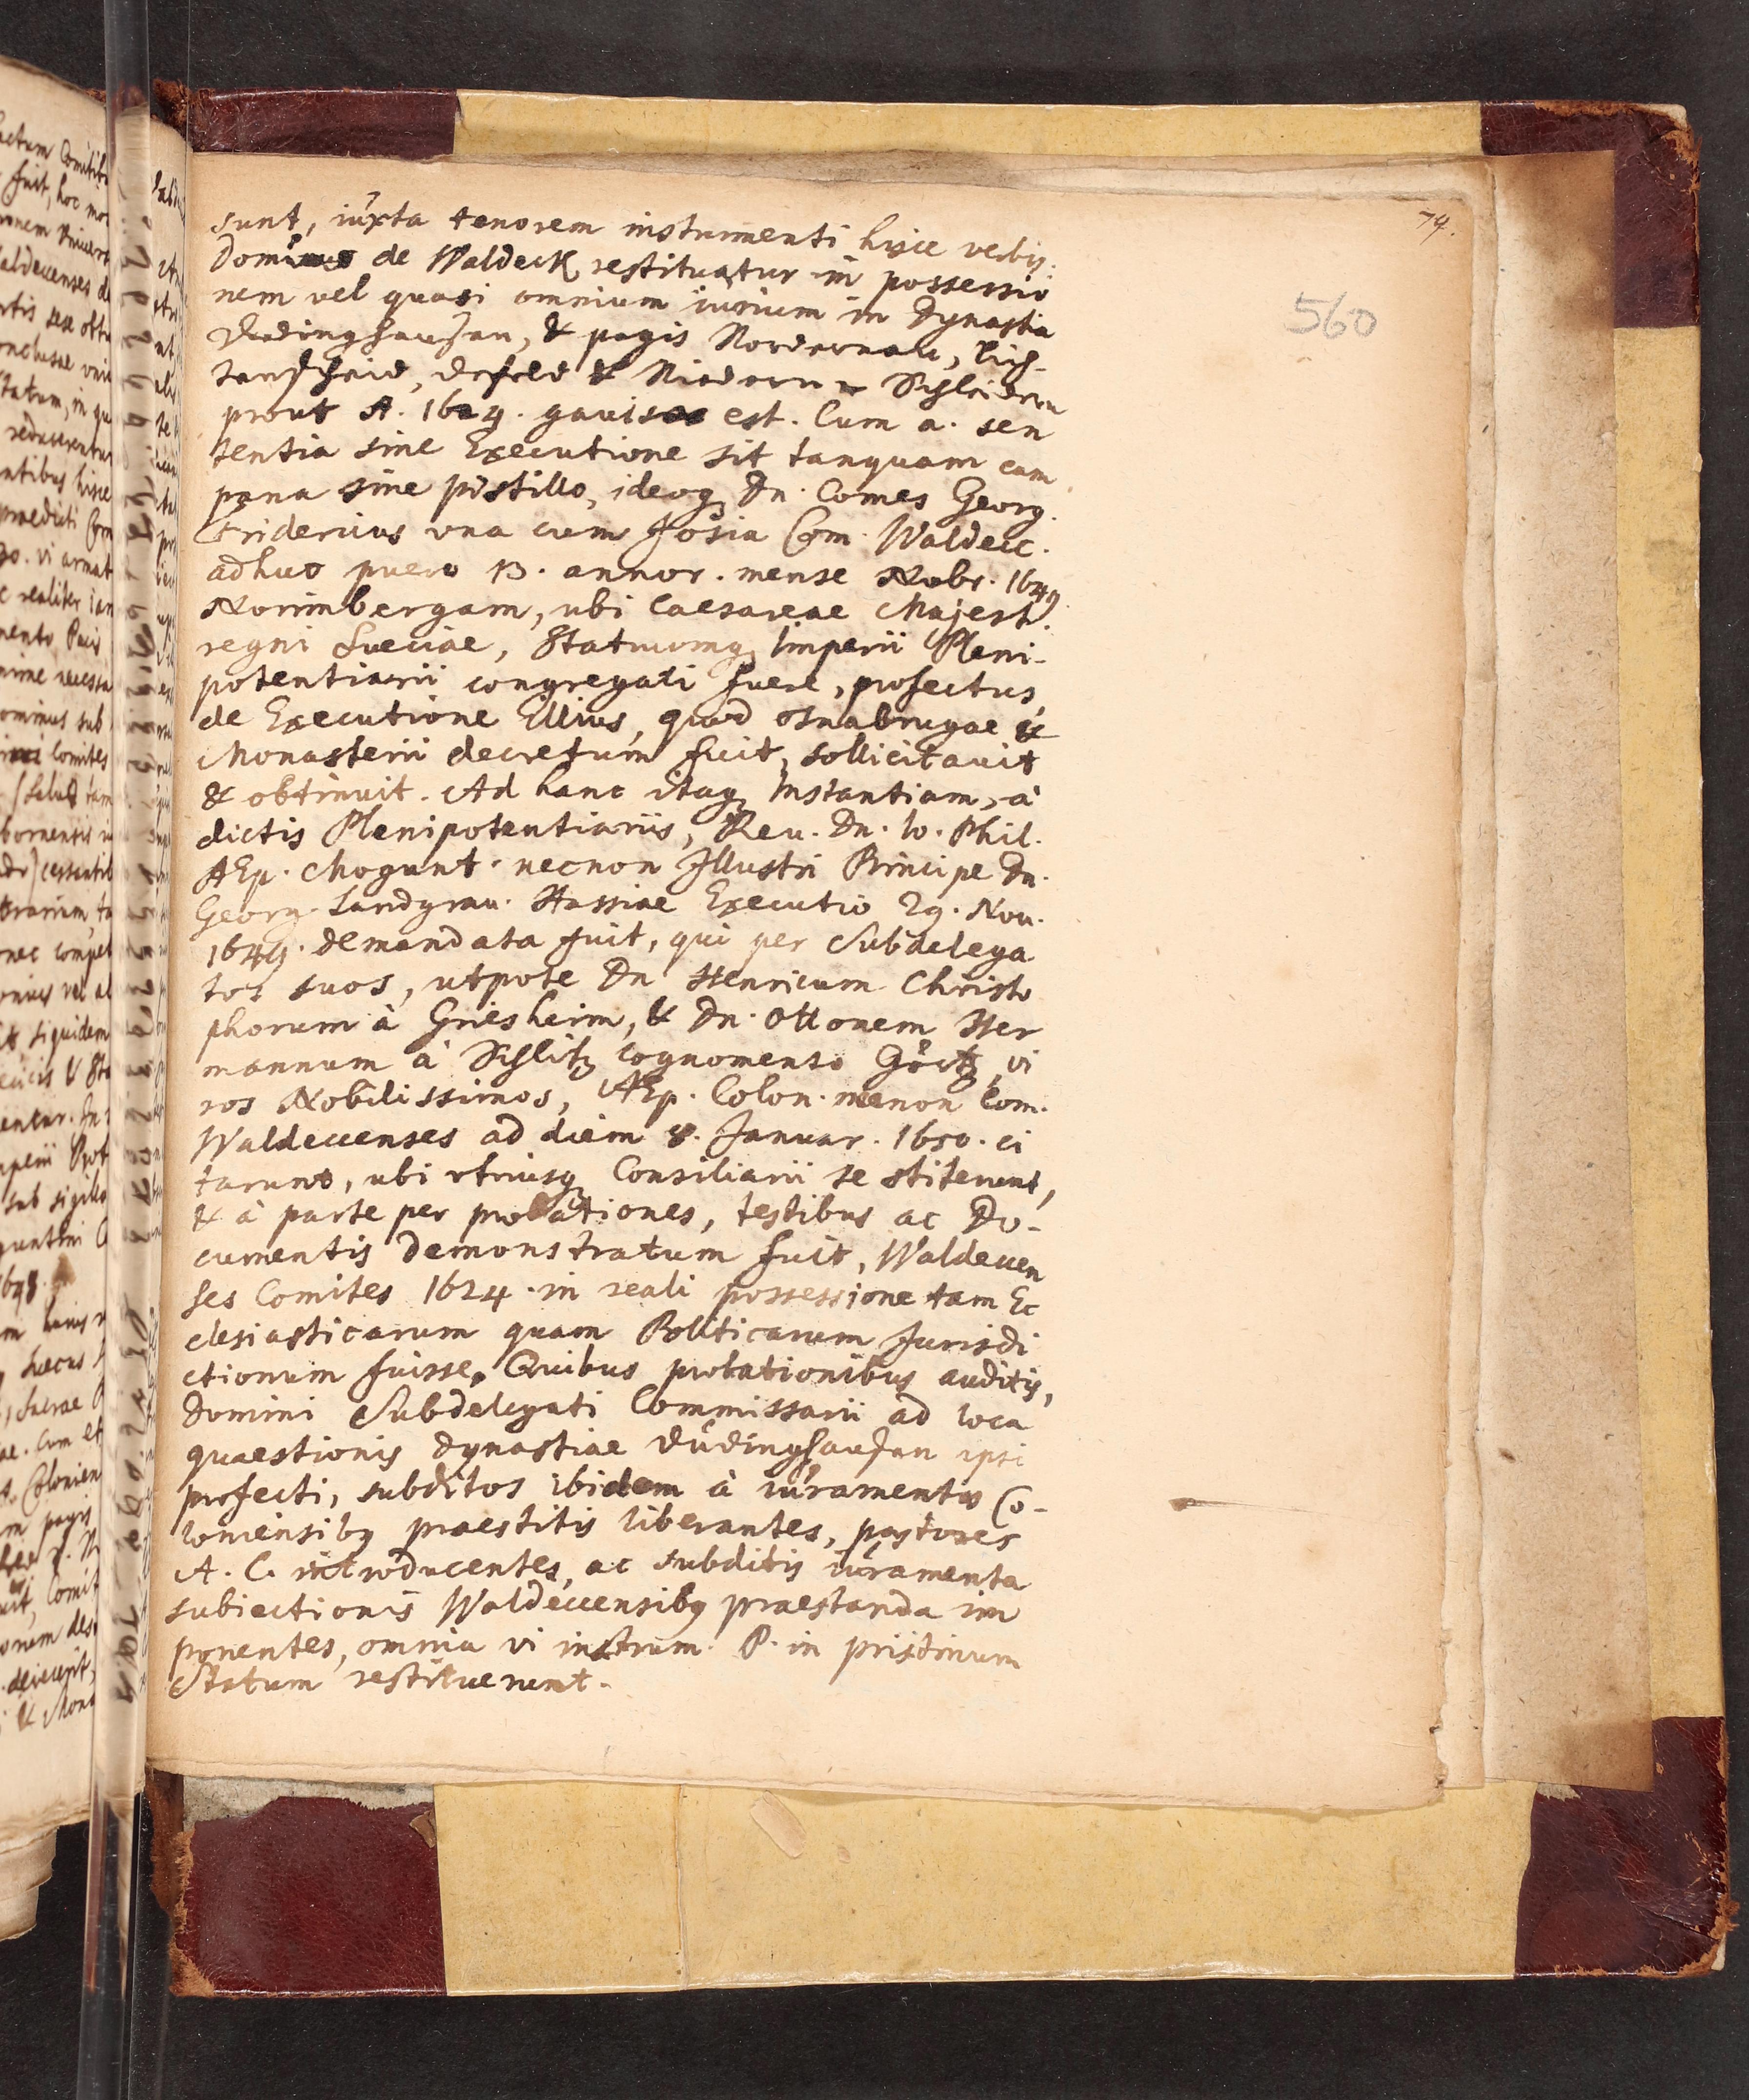 74.
560
sunt, iuxta tenorem instrumenti hisce verbis:
Dominus de Waldeck restituatur in possessio
nem vel quasi omnium iurium in Dynastia
Dudinghausen, & pagis Nordernau, Lich-
tenscheid, Defeld & Niedern - Schleidern
prout A. 1624. gavisae est. Cum a. sen
tentia sine Executione sit tanquam cam
pana sine pistillo, ideoq Dn. Comes Georg.
Fridericus una cum Josia Com. Waldecc.
adhuc puero 13. annor. mense Nobr. 1649
Norimbergam, ubi Caesareae Majest.
regni Sueciae, Statuumq Imperii Pleni-
potentiarii congregati fuere, profectus,
de Executione Illius, quod Osnabrugae &
Monasterii decretum fuit, sollicitavit
& obtinuit. Ad hanc itaq Instantiam, à
dictis Plenipotentiariis, Reu. Dn. Io. Phil.
AEp. Mogunt. necnon Illustri Principe Dn.
Georg. Landgrau. Hassiae Executio 29. Nou.
1649. demandata fuit, qui per Subdelega
tos suos, utpote Dn Henricum Christo
phorum à Griesheim, & Dn. Ottonem Her
mannum à Schlitz cognomento Görtz, vi
ros Nobilissimos, AEp. Colon. necnon Com.
Waldeccenses ad diem 8. Januar. 1650. ci
tarunt, ubi vtriusq Consiliarii se stiterunt,
& à parte per probationes, testibus ac Do-
cumentis demonstratum fuit, Waldeccen
ses Comites 1624. in reali possessione tam Ec
clesiasticarum quam Politicarum Jurisdi
ctionum fuisse. Quibus probationibus auditis,
Domini Subdelegati Commissarii ad loca
quaestionis Dynastiae Düdinghausen ipsi
profecti, subditos ibidem à iuramentis Co-
loniensibq praestitis liberantes, pastores
A. C. introducentes, ac subditis iuramenta
subiectionis Waldeccensibq praestanda im
ponentes, omnia vi instrum. P. in pristinum
Statum restituerunt.